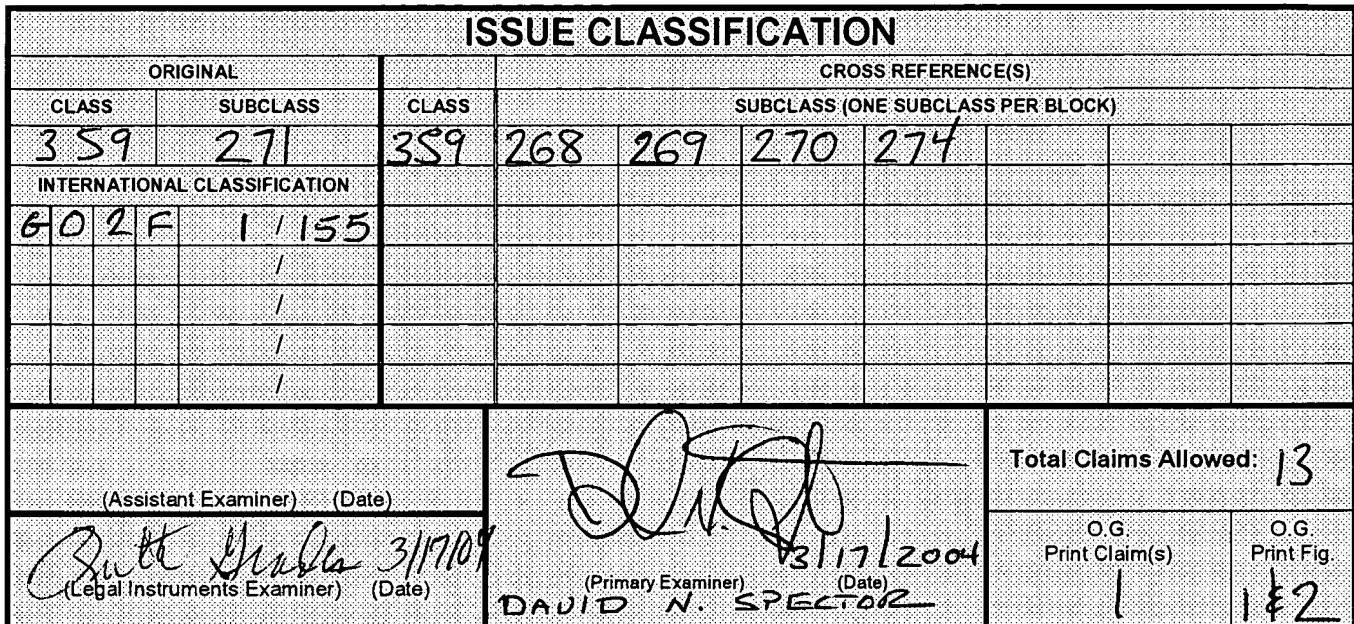 ISSUE CLASSIFICATION
ORIGINAL CROSS REFERENCE(S)
CLASS SUBCLASS CLASS SUBCLASS (ONE SUBCLASS PER BLOCK)
359 271 359 268 269 270 274
INTERNATIONAL CLASSIFICATION
G 0 2 F 1 / 155
/
/
/
/
Total Claims Allowed: 13
(Assistant Examiner) (Date)
Ruth 3/17/04
(Legal Instruments Examiner) (Date)
3/17/2004
(Primary Examiner) (Date)
DAVID N. SPECTOR
O.G. Print Claim(s)
1
O.G. Print Fig.
1 & 2